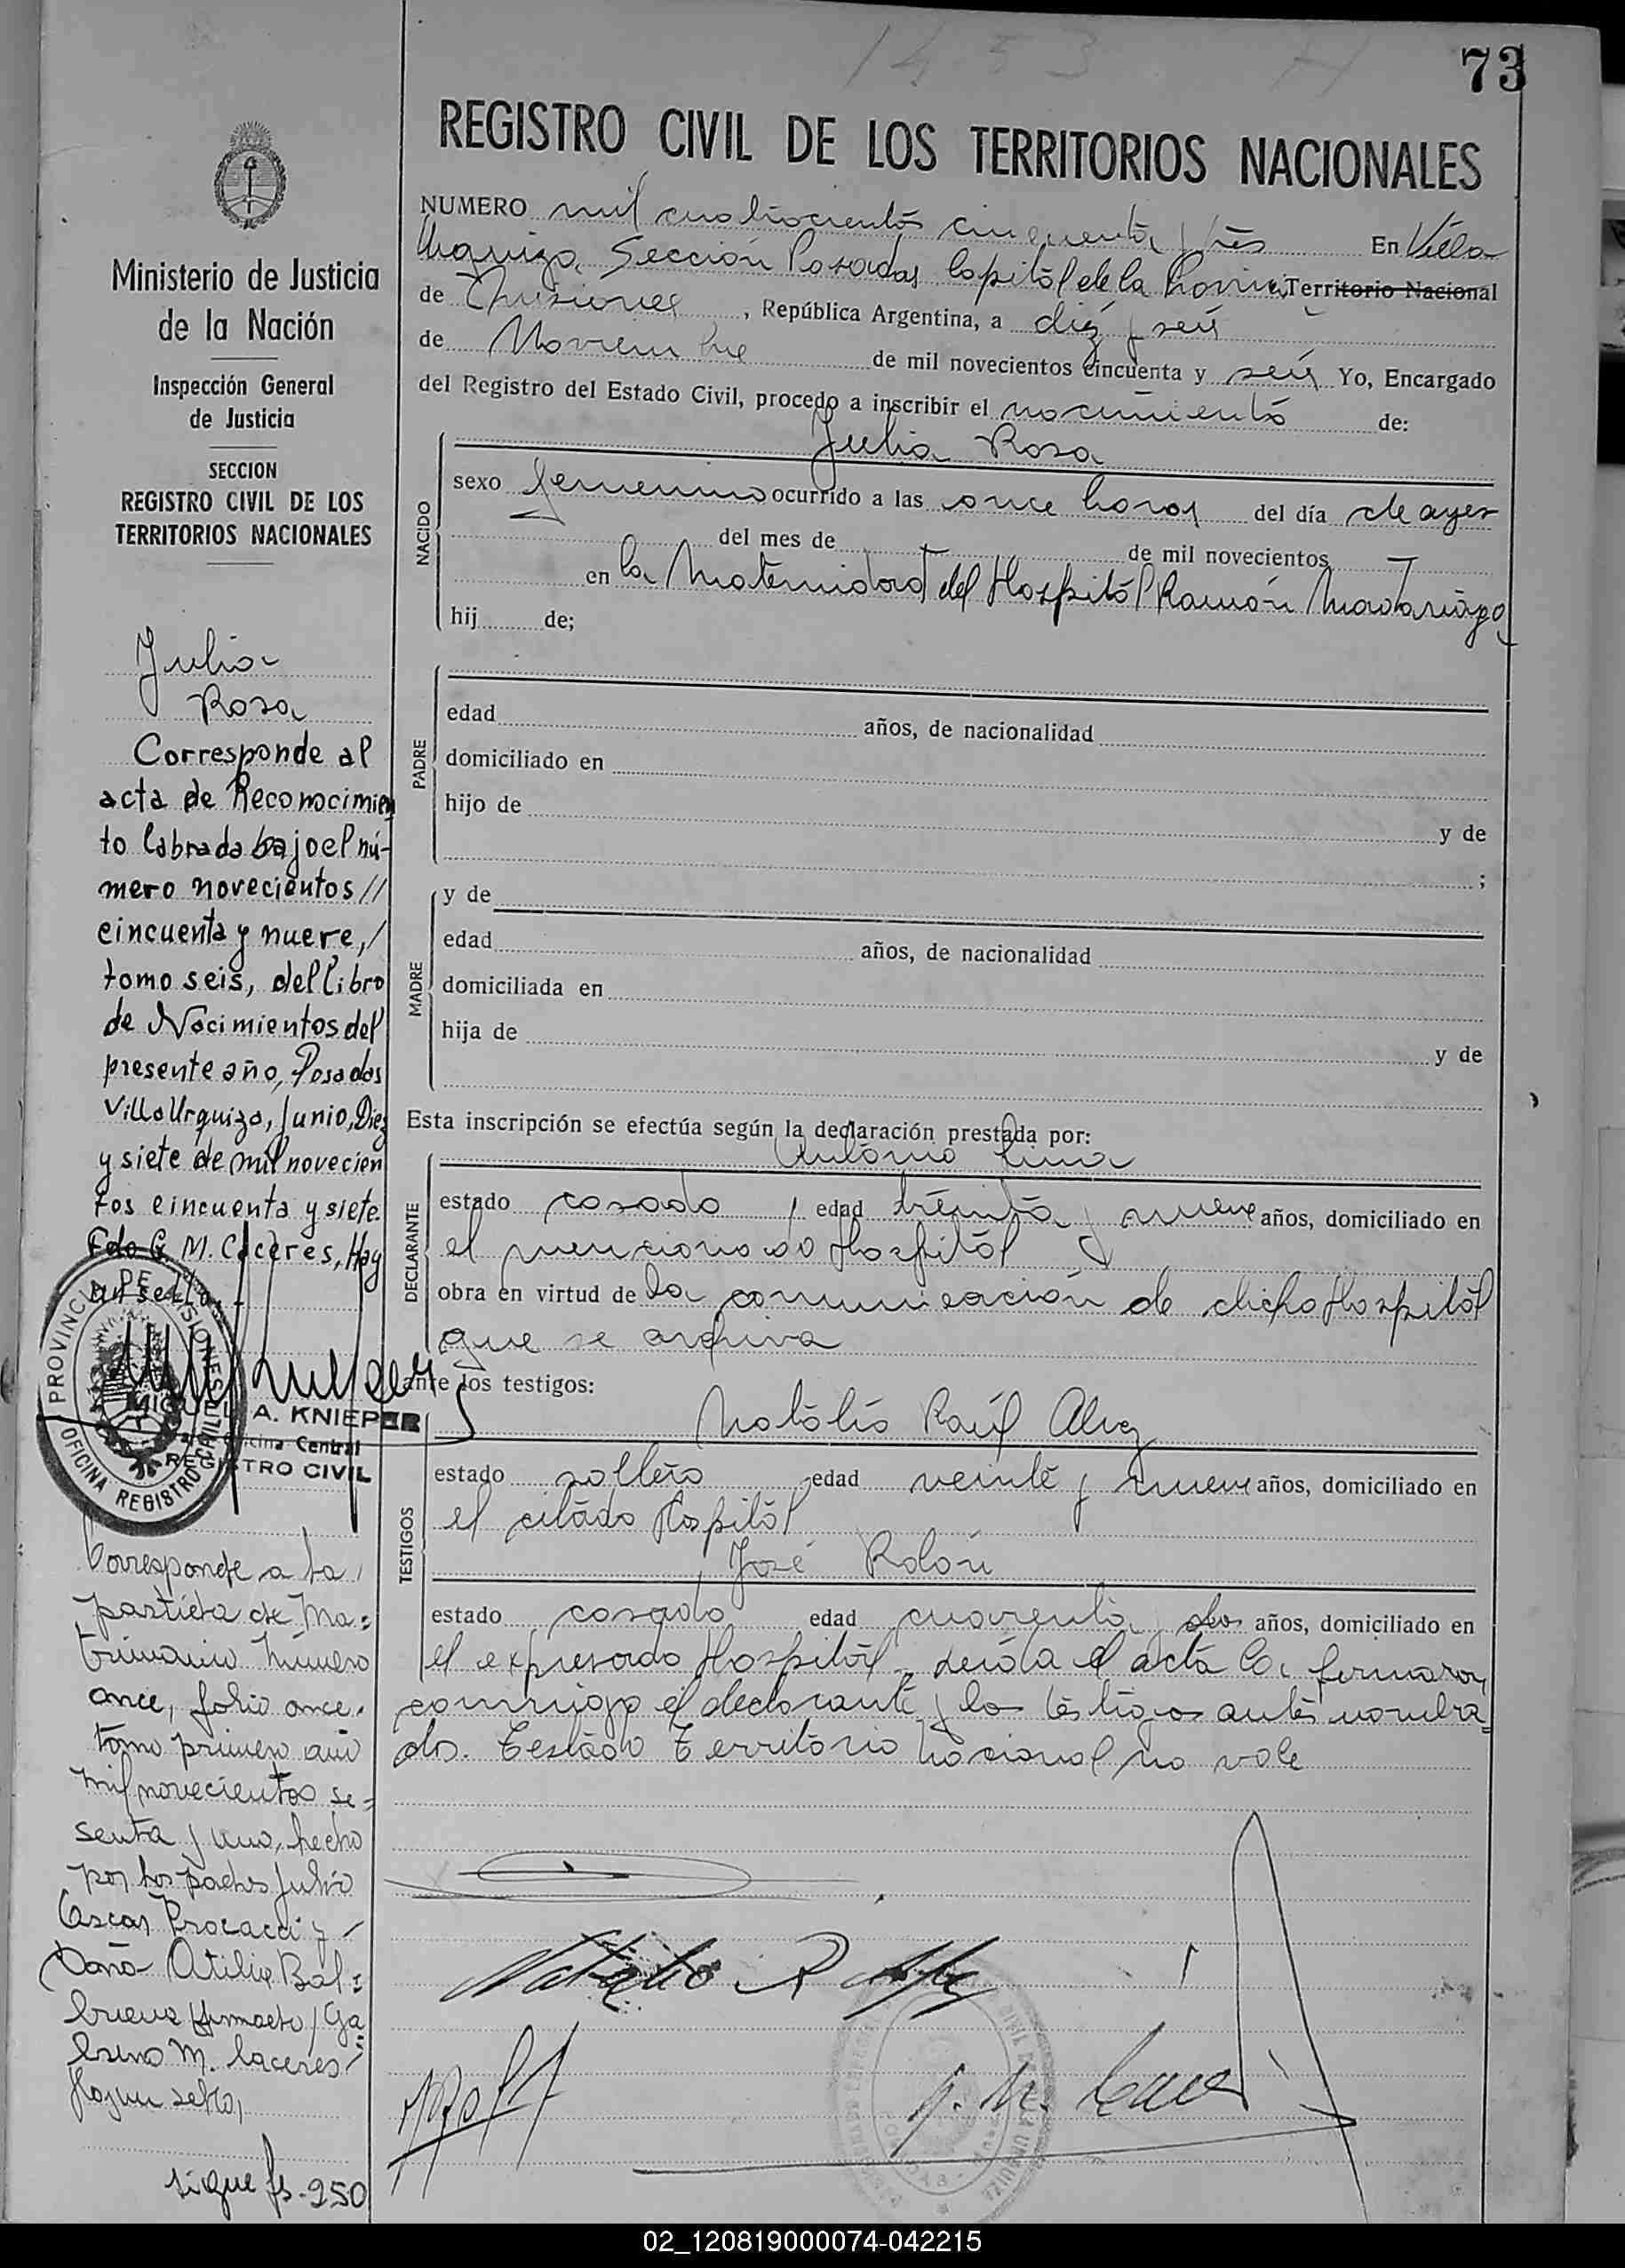 1453
73
REGISTRO CIVIL DE LOS TERRITORIOS NACIONALES
NUMERO mil cuatrocientos cincuenta y tres En Villa
Urquiza, Sección Posadas Capital de la Provincia Territorio Nacional
de Misiones, República Argentina, a diez y seis
de Noviembre de mil novecientos cincuenta y seis Yo, Encargado
del Registro del Estado Civil, procedo a inscribir el nacimiento de:
Julia Rosa
NACIDO
sexo femenino ocurrido a las once horas del día de ayer
del mes de de mil novecientos
en la Maternidad del Hospital Ramón Madariaga
hij de;
PADRE
edad años, de nacionalidad
domiciliado en
hijo de y de
;
MADRE
y de
edad años, de nacionalidad
domiciliada en
hija de y de
Esta inscripción se efectúa según la declaración prestada por:
DECLARANTE
Antonio Lima
estado casado, edad treinta y nueve años, domiciliado en
el mencionado Hospital
obra en virtud de la comunicación de dicho Hospital
que se archiva
ante los testigos:
TESTIGOS
Natalio Raúl
estado soltero edad veinte y nueve años, domiciliado en
el citado Hospital
José Rolón
estado casado edad cuarenta y dos años, domiciliado en
el expresado Hospital, leída el acta la firmaron
conmigo el declarante y los testigos antes nombra=
dos. Testado Territorio Nacional no vale
Natalio R
G. M. Caceres
Ministerio de Justicia
de la Nación
Inspección General
de Justicia
SECCION
REGISTRO CIVIL DE LOS
TERRITORIOS NACIONALES
Julia
Rosa
Corresponde al
acta de Reconocimien
to labrada bajo el nú-
mero novecientos //
cincuenta y nueve, /
tomo seis, del libro
de Nacimientos del
presente año, Posadas
Villa Urquiza, Junio, Diez
y siete de mil novecien
tos cincuenta y siete.
Fdo G. M. Cáceres, Hay
un sello.-
PROVINCIA DE MISIONES
OFICINA REGISTRO CIVIL
MIGUEL A. KNIEPER
Oficina Central
REGISTRO CIVIL
Corresponde a la
partida de Ma=
trimonio Número
once, folio once,
tomo primero año
mil novecientos se=
senta y uno, hecho
por los padres Julio
Oscar Procacci y
Doña Otilia Bal=
buena firmado / Ga
bino M. Caceres
Hay un sello,
sigue fs. 250
02_120819000074-042215